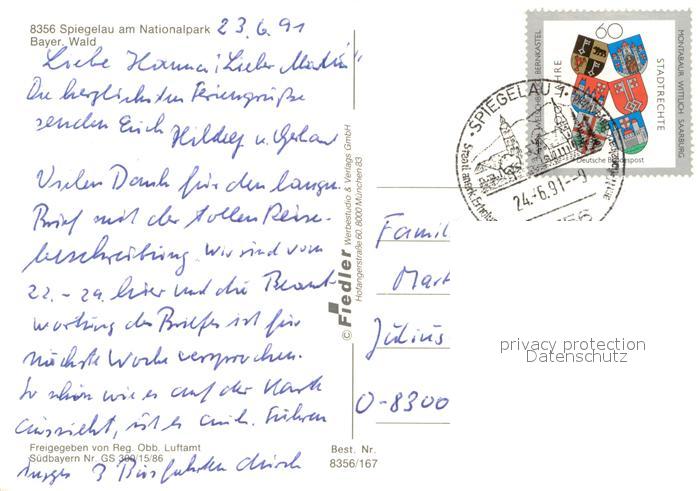 8356 Spiegelau am Nationalpark 23.6.91
Bayer. Wald
Liebe Hanna, Lieber Martin!
Die herzlichsten Feriengrüße
senden Euch Hildeg u. Gerhard
Vielen Dank für den langen
Brief mit der tollen Reise-
beschreibung. Wir sind vom
22. - 29. hier und die Beant-
wortung des Briefes ist für
nächste Woche versprochen.
So schön wie es auf der Karte
aussieht, ist es auch. Führen
3 Busfahrten durch
Freigegeben von Reg. Obb. Luftamt
Südbayern Nr. GS 300/15/86
Best. Nr.
8356/167
© Fiedler Werbestudio & Verlags GmbH
Hofangerstraße 60, 8000 München 83
60
BERNKASTEL
JAHRE
STADTRECHTE
MONTABAUR WITTLICH SAARBURG
Deutsche Bundespost
SPIEGELAU 1
Staatl. anerk. Erholungs
24.-6.91-9
Famil
Mart
Julius
O-8300
privacy protection
Datenschutz